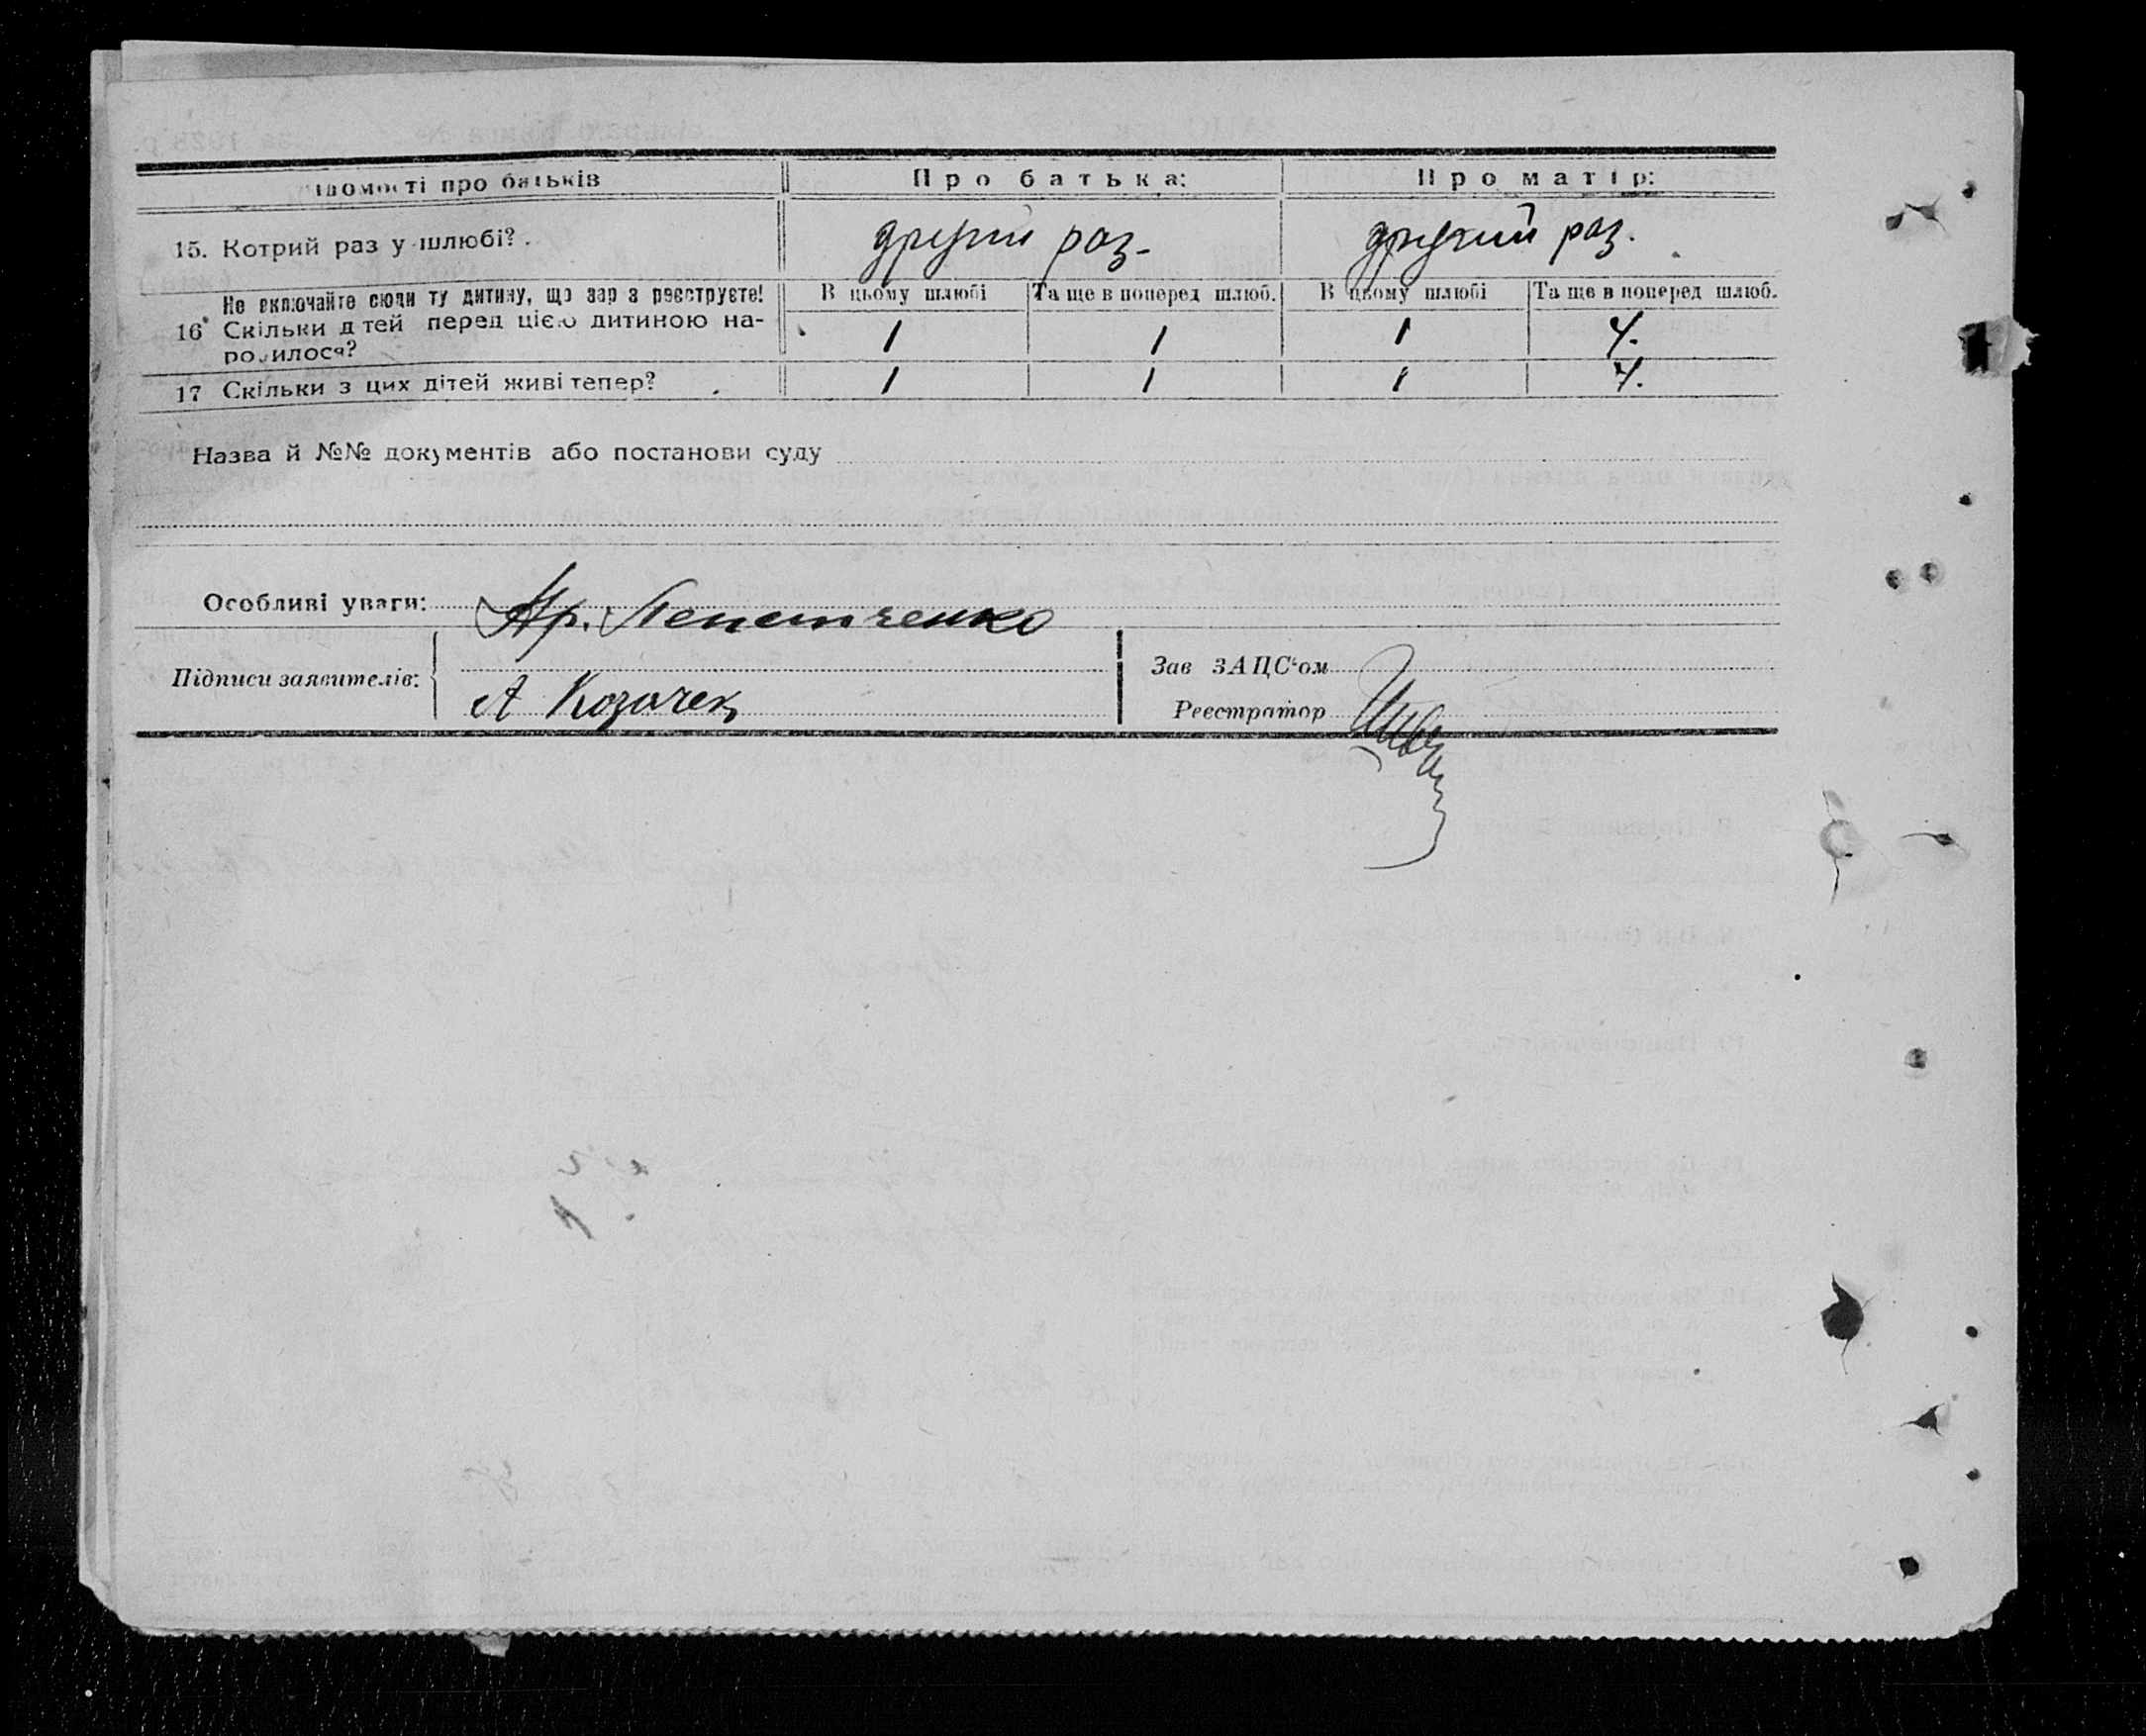 Відомості про батьків Про батька: Про матір:
15. Котрий раз у шлюбі? другий раз. другий раз.
Не включайте сюди ту дитину, що зараз реєструєте! В цьому шлюбі Та ще в поперед шлюб. В цьому шлюбі Та ще в поперед шлюб.
16 Скільки дітей перед цією дитиною на- 1 1 1 4.
родилося?
17 Скільки з цих дітей живі тепер? 1 1 1 4.
Назва й №№ документів або постанови суду
Особливі уваги:
Підписи заявителів: Зав ЗАЦС'ом
А Козачек Реєстратор